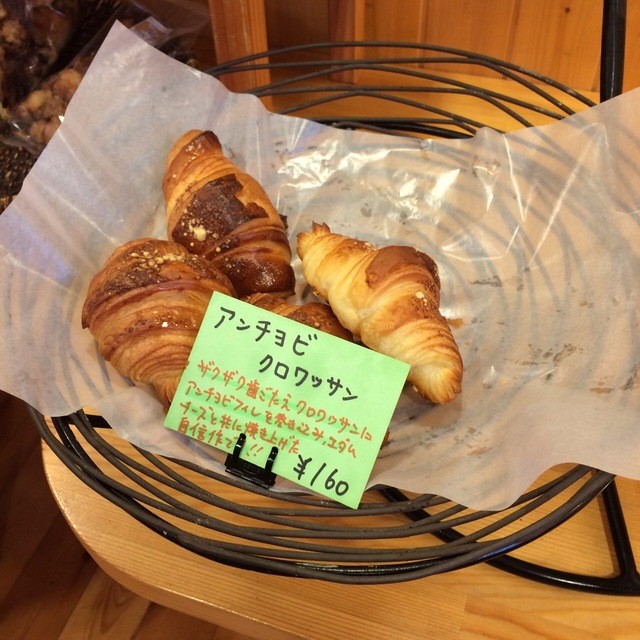 アンチョビ
クロワッサン
ザクザク歯ごたえクロワッサンに
アンチョビフィレを巻き込み、エダム
チーズと共に焼き上げた
自信作です!!
¥160